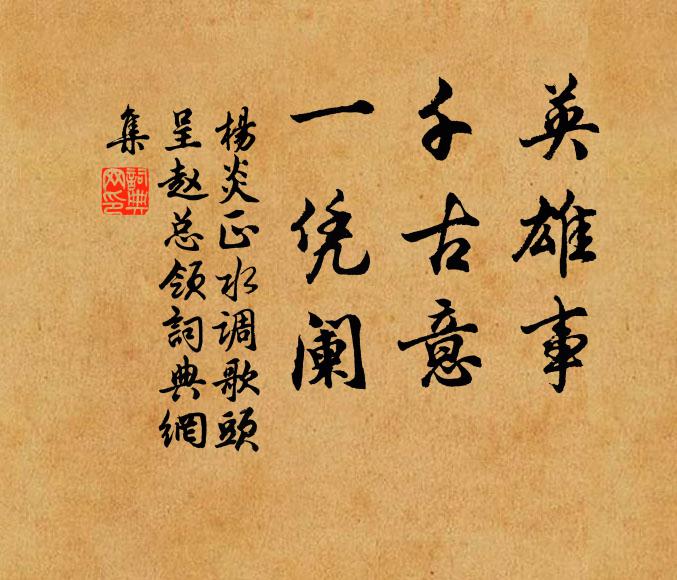 英雄事
千古意
一凭阑
楊炎正水调歌頭
呈赵总领詞典網
集
詞典網印